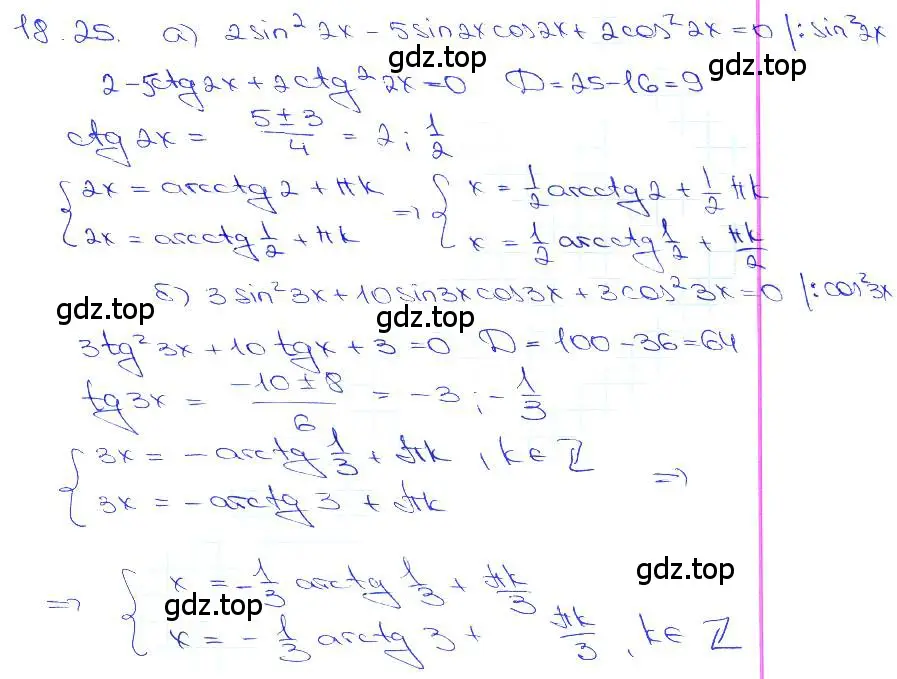 18.25. а) 2sin² 2x - 5sin2x cos2x + 2cos² 2x = 0 |: sin² 2x
gdz.top
gdz.top
2 - 5ctg2x + 2ctg² 2x = 0 D = 25 - 16 = 9
ctg 2x = (5 ± 3)/4 = 2; 1/2
{ 2x = arcctg 2 + πk
{ 2x = arcctg 1/2 + πk
=> { x = 1/2 arcctg 2 + 1/2 πk
{ x = 1/2 arcctg 1/2 + πk/2
б) 3sin² 3x + 10sin3x cos3x + 3cos² 3x = 0 |: cos² 3x
gdz.top
gdz.top
3tg² 3x + 10tgx + 3 = 0 D = 100 - 36 = 64
tg3x = (-10 ± 8)/6 = -3; -1/3
{ 3x = -arctg 1/3 + πk, k ∈ Z
{ 3x = -arctg 3 + πk
=>
=> { x = -1/3 arctg 1/3 + πk/3
gdz.top
gdz.top
{ x = -1/3 arctg 3 + πk/3, k ∈ Z